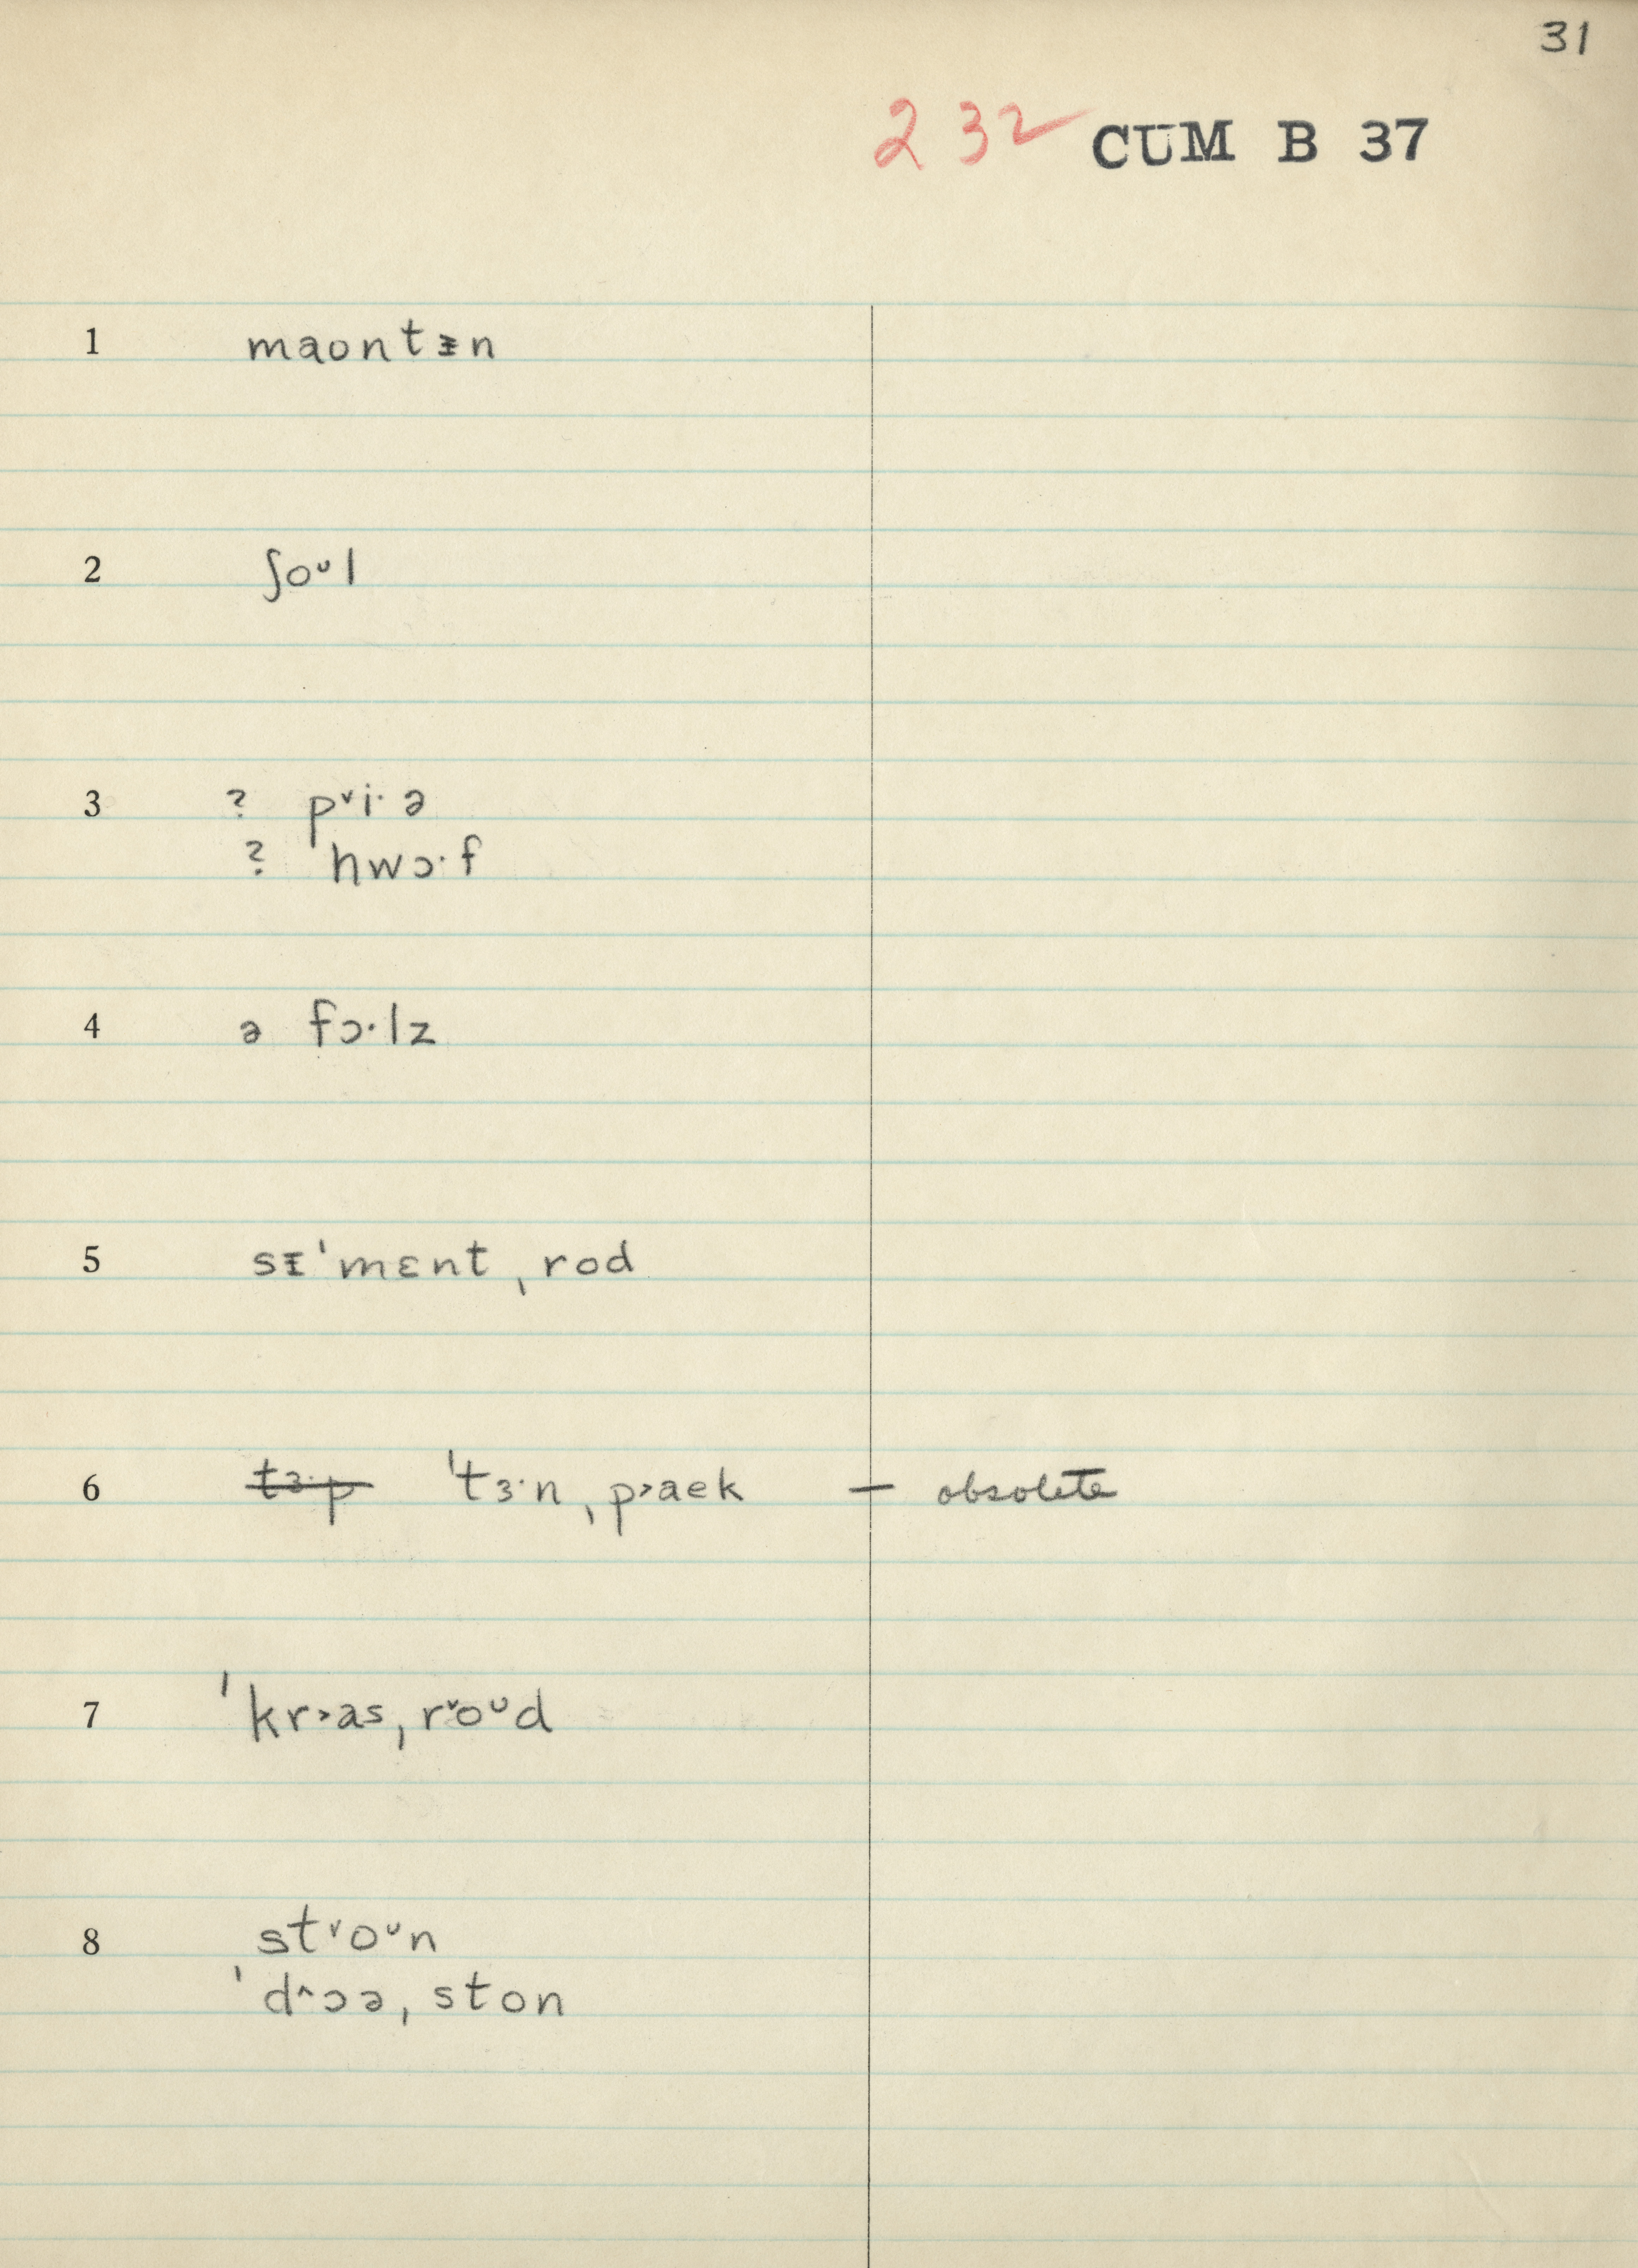 31
232 CUM B 37
1 maontɪ̵n
2 ʃoᴜl
3 ? p˅i·ə
? ˈhwɔ·f
4 ə fɔ·lz
5 sɪ̵ˈmɛntˌrod
6 ~~tɜ·p~~ ˈtɜ·nˌp˃aek — obsolete
7 ˈkr˃asˌr˅oᴜd
8 st˅oᴜn
ˈd^ɔəˌston